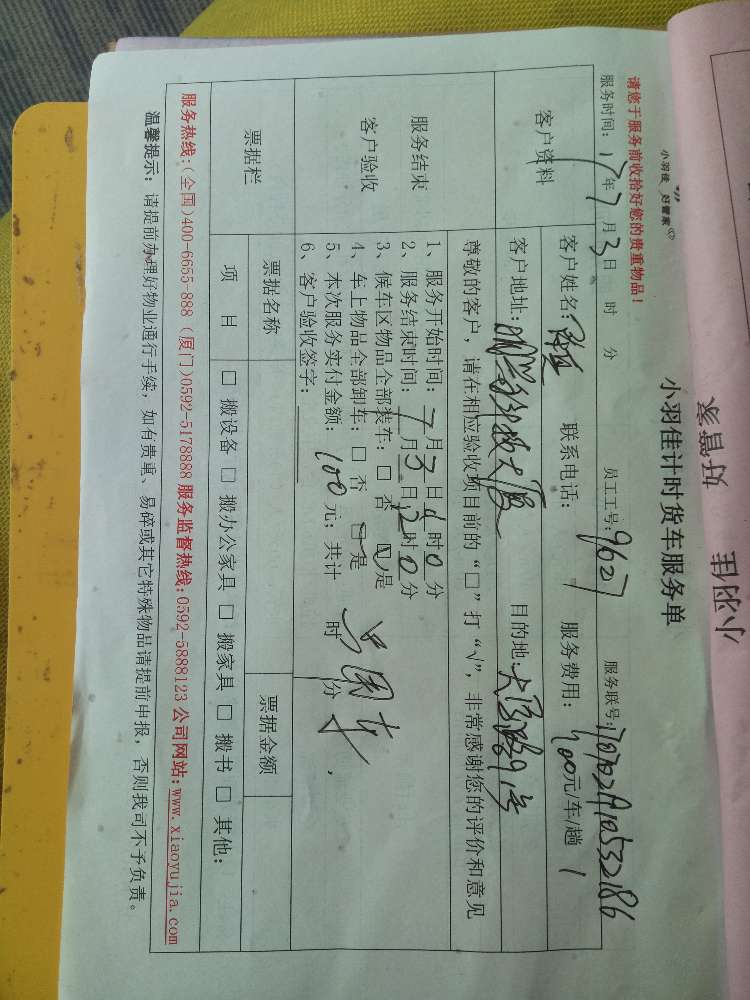 小羽佳 好管家
小羽佳 好管家
小羽佳计时货车服务单
请您于服务前收拾好您的贵重物品！
服务时间：17年7月3日 时 分 员工工号：9627 服务联号：
客户资料
客户姓名： 联系电话： 服务费用：100元/车/趟 1
客户地址： 大厦 目的地：
尊敬的客户，请在相应验收项目前的“□”打“√”，非常感谢您的评价和意见
服务结束
客户验收
1、服务开始时间：7月3日 时0分
2、服务结束时间：7月3日12时0分
3、候车区物品全部装车：□ 否 ☑是
4、车上物品全部卸车：□ 否 ☑是
5、本次服务实付金额：100元；共计 时 分
6、客户验收签字：
票据栏
票据名称 票据金额
项 目 □ 搬设备 □ 搬办公家具 □ 搬家具 □ 搬书 □ 其他：
服务热线：(全国)400-6655-888 (厦门)0592-5178888 服务监督热线：0592-5888123 公司网站：www.xiaoyujia.com
温馨提示：请提前办理好物业通行手续，如有贵重、易碎或其它特殊物品请提前申报，否则我司不予负责。